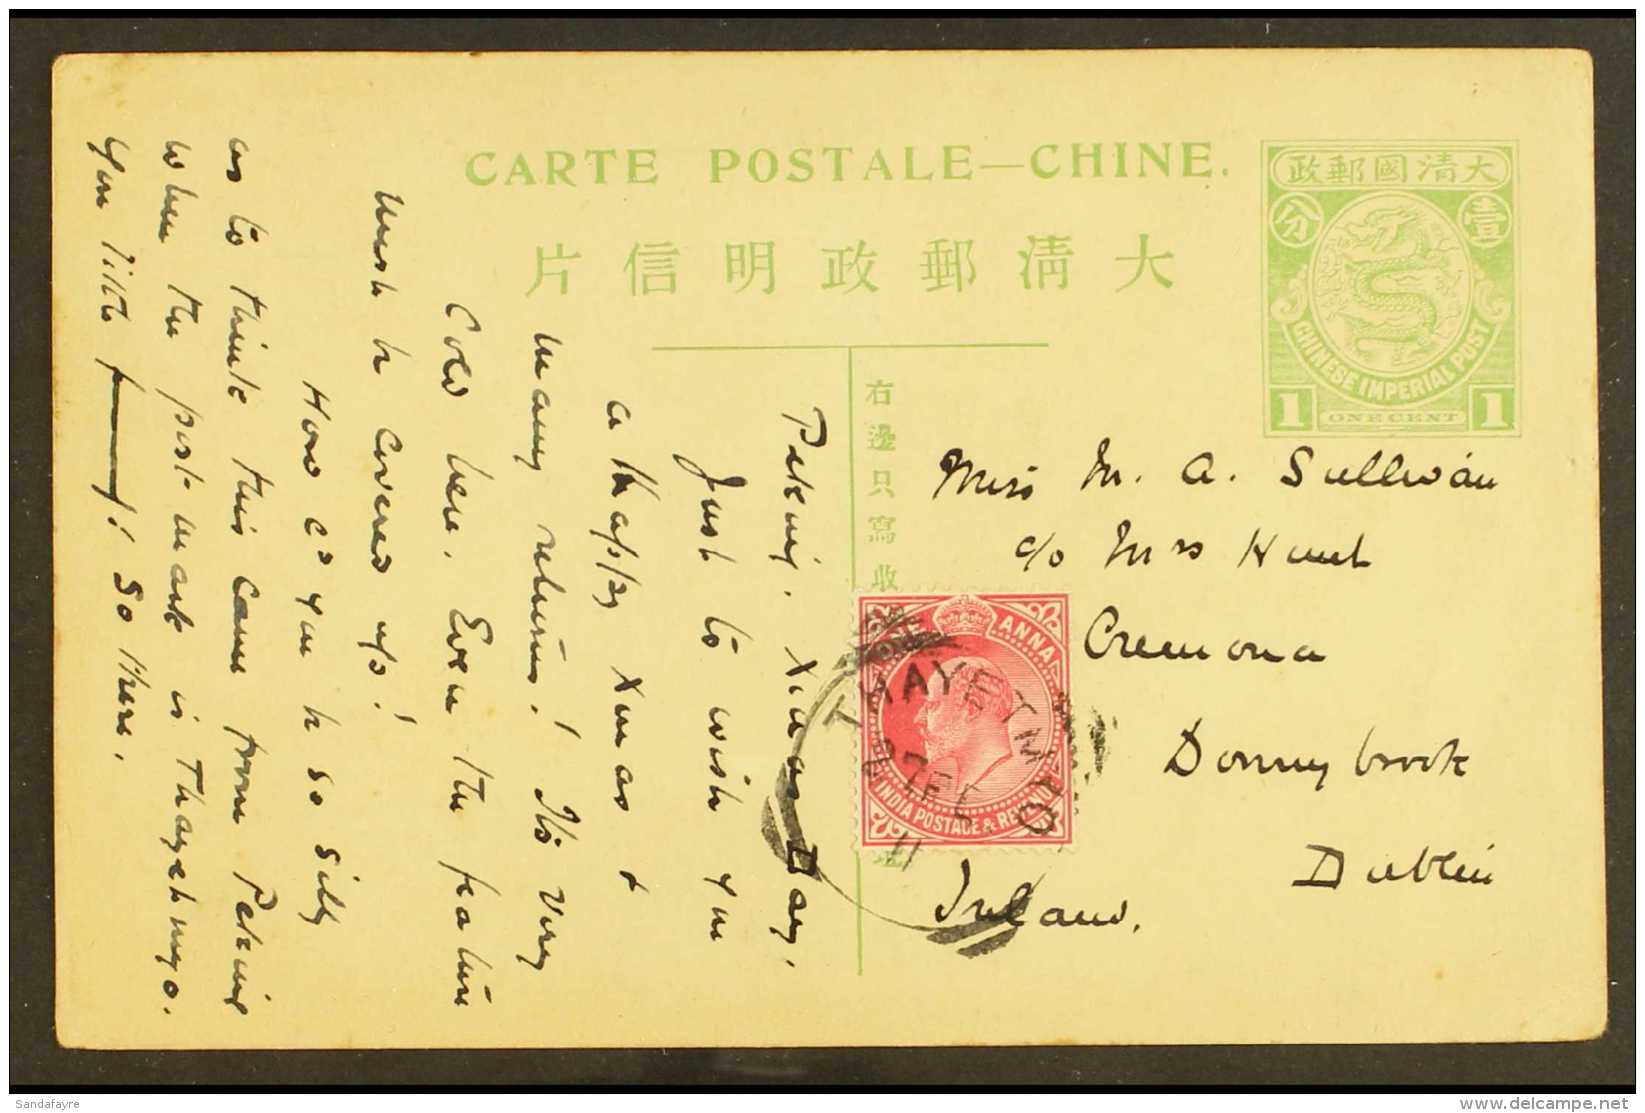 CARTE POSTALE—CHINE.
片信明政郵清大
政郵國清大
分
壹
CHINESE IMPERIAL POST
1 ONE CENT 1
右邊只寫收
Miss M. A. Sullivan
c/o Mrs Hunt
Cremona
Donnybrook
Dublin
Ireland.
ONE ANNA
INDIA POSTAGE & REVENUE
THAYETMYO
11
Peking. Xmas Day.
Just to wish you
a happy Xmas &
many returns! It's very
Cold here. Even the feature
must be covered up!
How cd you be so silly
as to think this came from Peking
when the post-mark is Thayetmyo.
You little f——! So there.
Sandafayre
www.delcampe.net